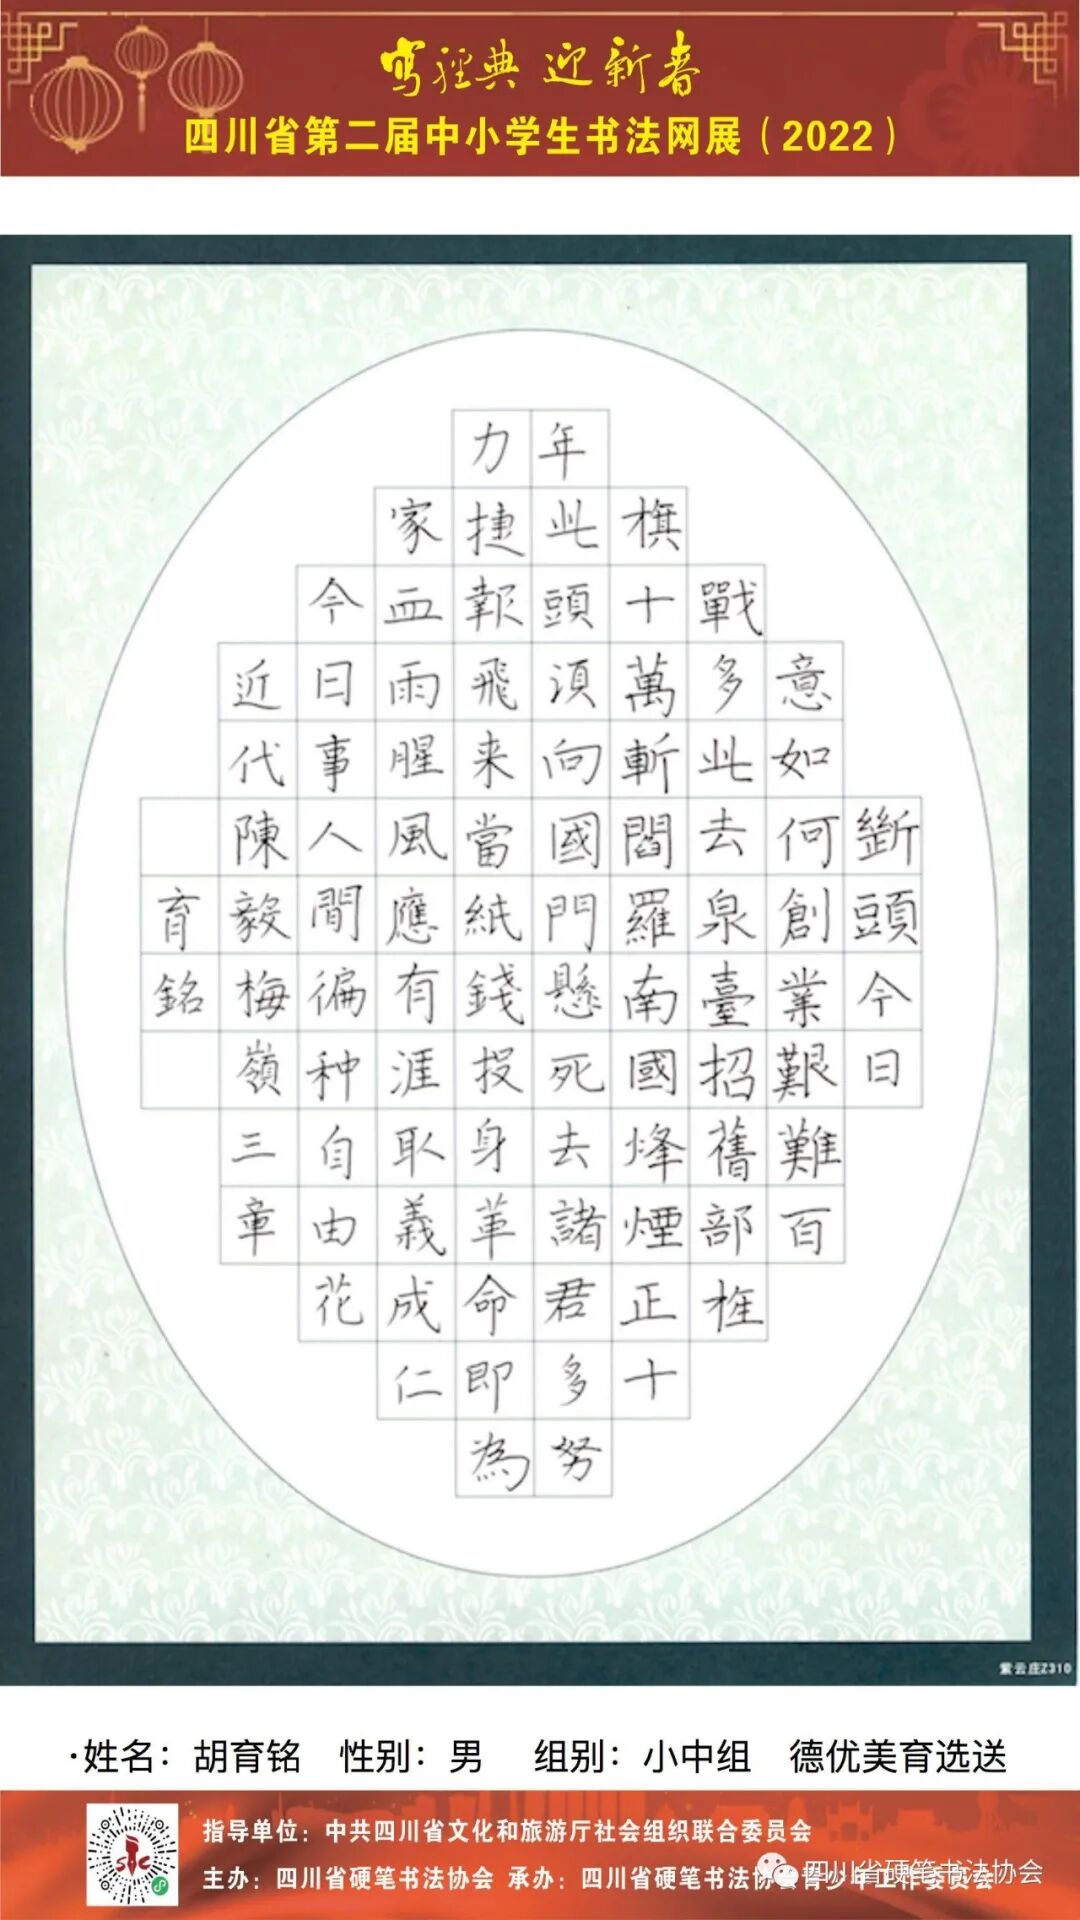 写经典 迎新春
四川省第二届中小学生书法网展（2022）
斷頭今日
意如何創業艱難百
戰多此去泉臺招舊部旌
旗十萬斬閻羅南國烽煙正十
年此頭須向國門懸死去諸君多努
力捷報飛来當紙錢投身革命即為
家血雨腥風應有涯取義成仁
今日事人間徧种自由花
近代陳毅梅嶺三章
育銘
紫云庄Z310
·姓名：胡育铭 性别：男 组别：小中组 德优美育选送
指导单位：中共四川省文化和旅游厅社会组织联合委员会
主办：四川省硬笔书法协会 承办：四川省硬笔书法协会青少年工作委员会
四川省硬笔书法协会